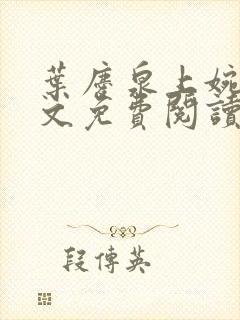 葉塵泉上婉
文免費閱讀
段傅英